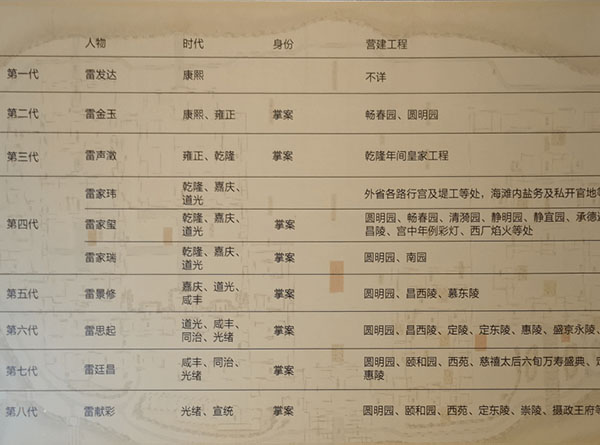 人物 时代 身份 营建工程
第一代 雷发达 康熙 不详
第二代 雷金玉 康熙、雍正 掌案 畅春园、圆明园
第三代 雷声澂 雍正、乾隆 掌案 乾隆年间皇家工程
雷家玮 乾隆、嘉庆、
道光 外省各路行宫及堤工等处，海滩内盐务及私开官地等
第四代 雷家玺 乾隆、嘉庆、
道光 掌案 圆明园、畅春园、清漪园、静明园、静宜园、承德
昌陵、宫中年例彩灯、西厂焰火等处
雷家瑞 乾隆、嘉庆、
道光 掌案 圆明园、南园
第五代 雷景修 嘉庆、道光、
咸丰 掌案 圆明园、昌西陵、慕东陵
第六代 雷思起 道光、咸丰、
同治、光绪 掌案 圆明园、昌西陵、定陵、定东陵、惠陵、盛京永陵、
第七代 雷廷昌 咸丰、同治、
光绪 掌案 圆明园、颐和园、西苑、慈禧太后六旬万寿盛典、
惠陵
第八代 雷献彩 光绪、宣统 掌案 圆明园、颐和园、西苑、定东陵、崇陵、摄政王府等